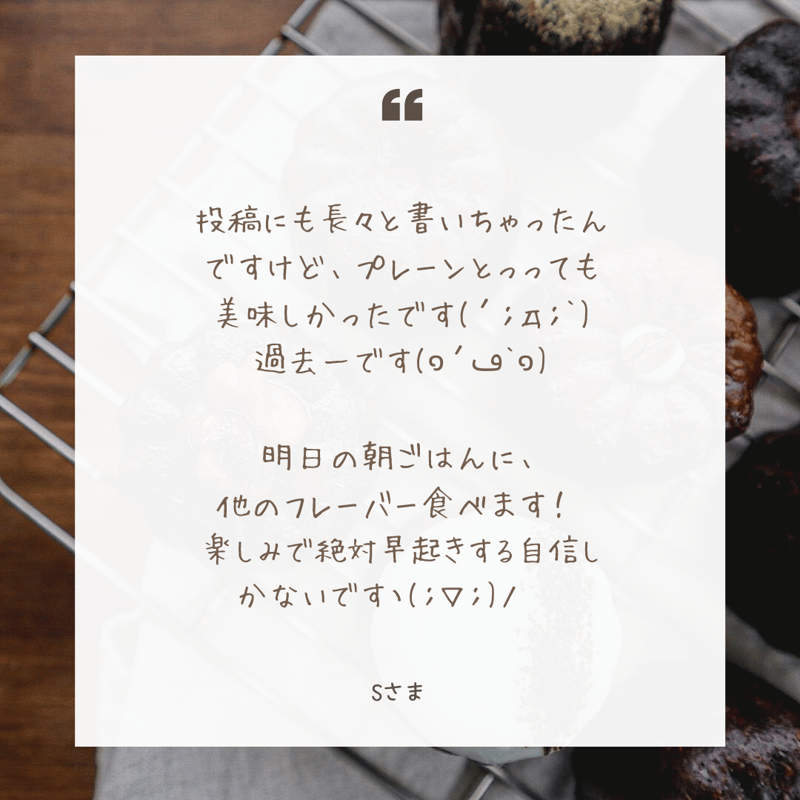 “
投稿にも長々と書いちゃったん
ですけど、プレーンとっっても
美味しかったです(´；д；`)
過去一です(๑´ڡ`๑)
明日の朝ごはんに、
他のフレーバー食べます！
楽しみで絶対早起きする自信し
かないですヽ(；▽；)ノ
Sさま